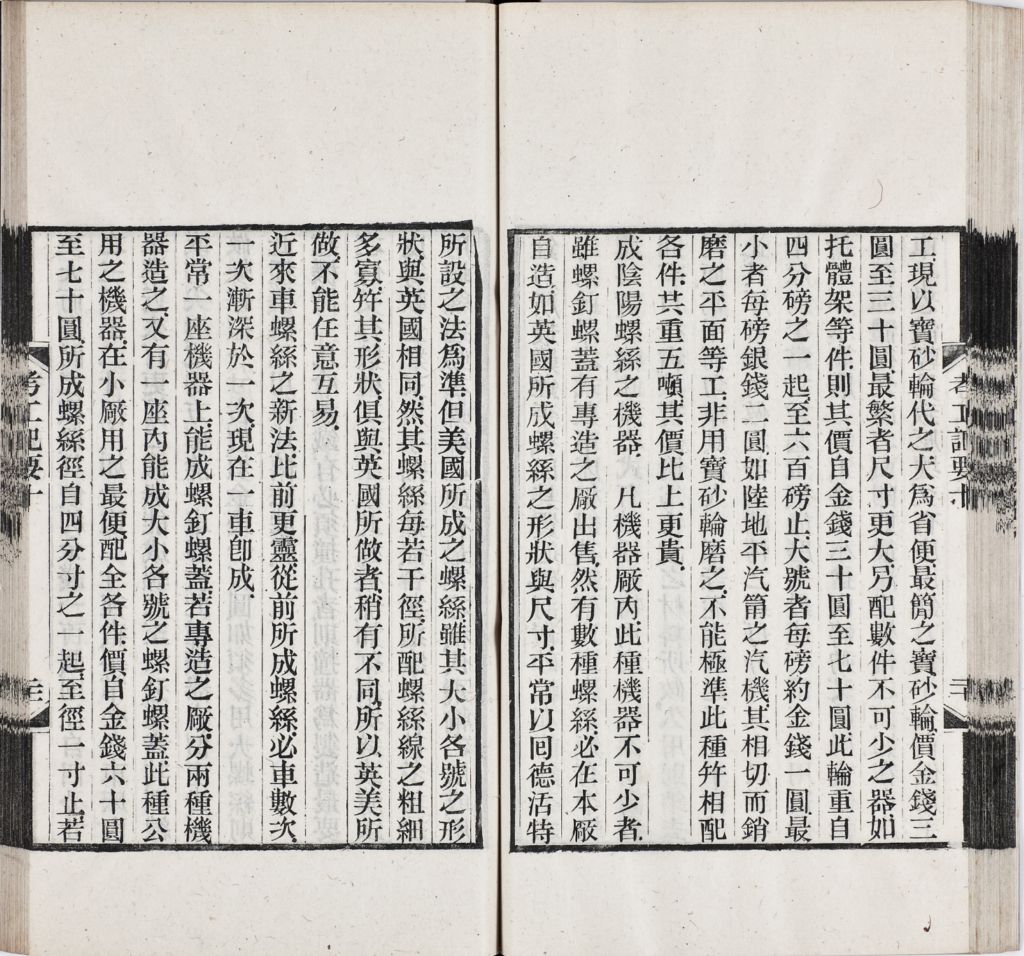 工現以寶砂輪代之大爲省便最簡之寶砂輪價金錢三
圓至三十圓最繁者尺寸更大另配數件不可少之器如
托體架等件則其價自金錢三十圓至七十圓此輪重自
四分磅之一起至六百磅止大號者每磅約金錢一圓最
小者每磅銀錢二圓如陸地平汽筩之汽機其相切而銷
磨之平面等工非用寶砂輪磨之不能極準此種筓相配
各件共重五噸其價比上更貴
成陰陽螺絲之機器 凡機器厰內此種機器不可少者
雖螺釘螺蓋有專造之厰出售然有數種螺絲必在本厰
自造如英國所成螺絲之形狀與尺寸平常以囘德活特
考工記要十
三十
所設之法爲準但美國所成之螺絲雖其大小各號之形
狀與英國相同然其螺絲每若干徑所配螺絲線之粗細
多寡筓其形狀俱與英國所做者稍有不同所以英美所
做不能任意互易
近來車螺絲之新法比前更靈從前所成螺絲必車數次
一次漸深於一次現在一車卽成
平常一座機器上能成螺釘螺蓋若專造之厰分兩種機
器造之又有一座內能成大小各號之螺釘螺蓋此種公
用之機器在小厰用之最便配全各件價自金錢六十圓
至七十圓所成螺絲徑自四分寸之一起至徑一寸止若
考工記要十